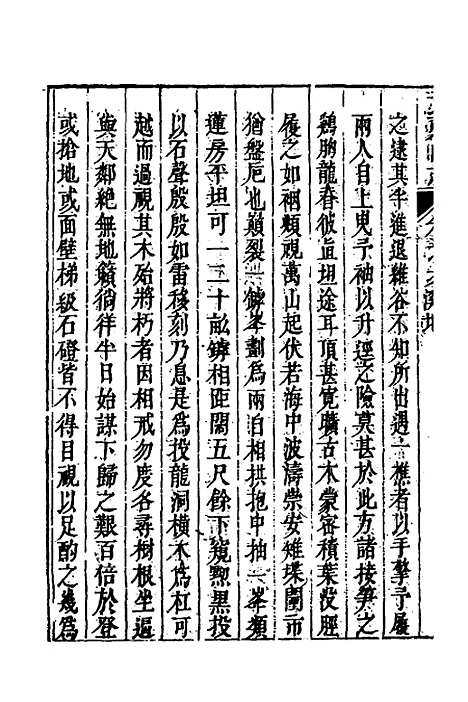 之逮其半進退維谷不知所出遇一樵者以手擎予屨
兩人自上曳予袖以升逕之險莫甚於此方諸接笋之
鷄胸龍春彼直坦途耳頂甚寬曠古木蒙密積葉没脛
履之如兩頰視萬山起伏若海中波濤崇安雉堞闤市
猶盤巵也巔裂一罅峯劃爲兩泊相拱抱中抽一峯類
蓮房平坦可一二十畝罅相距闊五尺餘下窺黝黑投
以石聲殷殷如雷移刻乃息是爲投龍洞橫木爲杠可
越而過視其木殆將朽者因相戒勿度各尋樹根坐逼
與天鄰絶無地籟徜徉半日始謀下歸之艱百倍於登
或搶地或面壁梯級石磴皆不得目視以足酌之幾爲